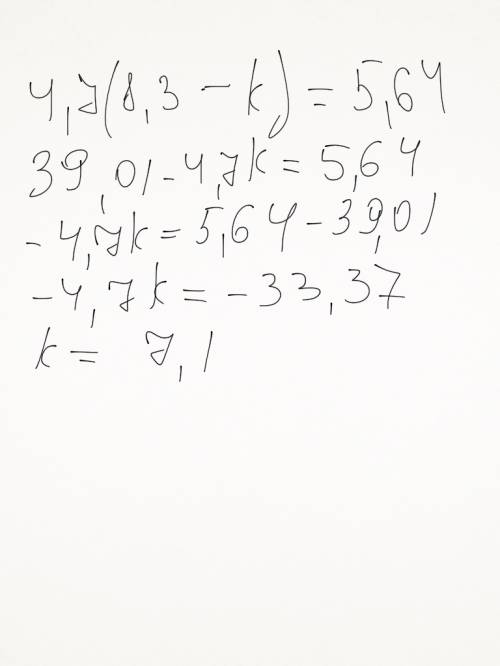 4,7(8,3 - k) = 5,64
39,01 - 4,7k = 5,64
- 4,7k = 5,64 - 39,01
- 4,7k = - 33,37
k = 7,1